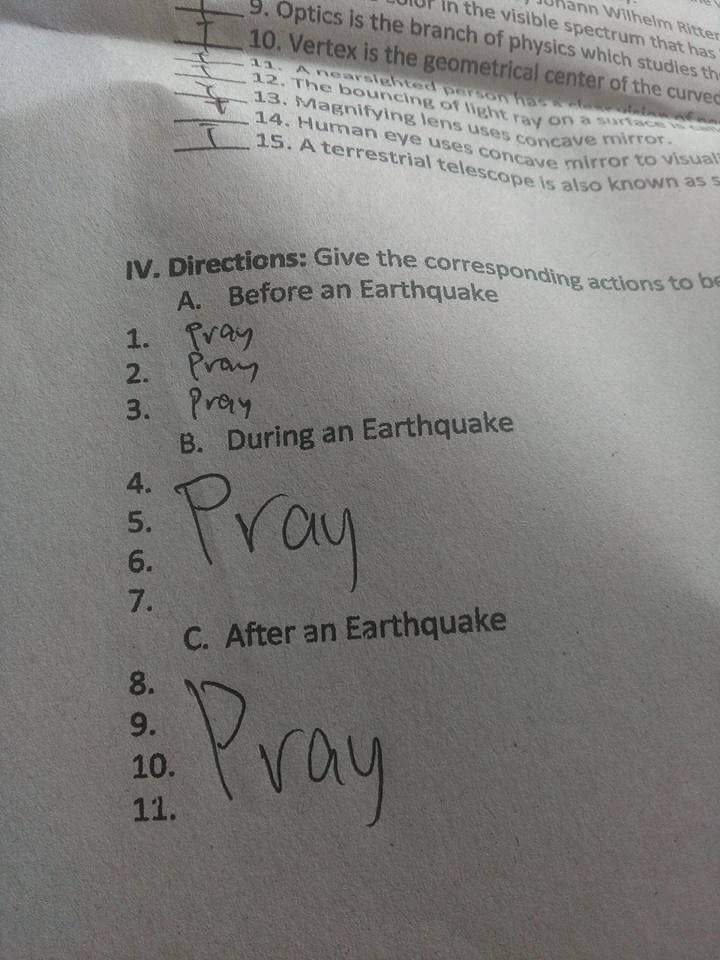 in the visible spectrum that has
Johann Wilhelm Ritter
9. Optics is the branch of physics which studies th
I 10. Vertex is the geometrical center of the curved
11. A nearsighted person has a clear vision of
12. The bouncing of light ray on a surface is
13. Magnifying lens uses concave mirror.
14. Human eye uses concave mirror to visual
I 15. A terrestrial telescope is also known as s
IV. Directions: Give the corresponding actions to be
A. Before an Earthquake
1. Pray
2. Pray
3. Pray
B. During an Earthquake
4.
5. Pray
6.
7.
C. After an Earthquake
8.
9. Pray
10.
11.